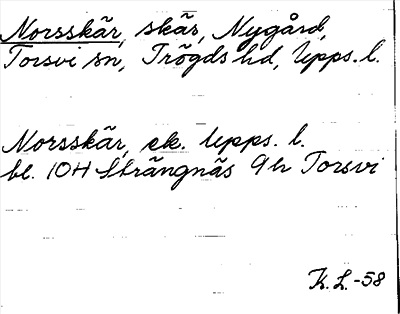 Norsskär, skär, Nygård,
Torsvi sn, Trögds hd, Upps. l.
Norsskär, ek. Upps. l.
bl. 10H Strängnäs 9h Torsvi
K. L. -58